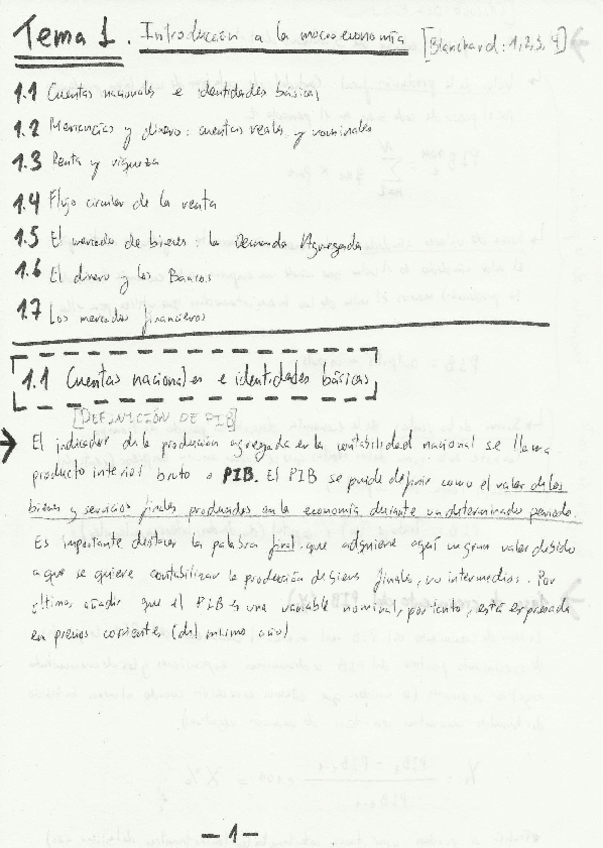 Tema 1. Introducción a la macroeconomía [Blanchard: 1,2,3,4]
1.1 Cuentas nacionales e identidades básicas
1.2 Mercancías y dinero: cuentas reales y nominales
1.3 Renta y riqueza
1.4 Flujo circular de la renta
1.5 El mercado de bienes: la Demanda Agregada
1.6 El dinero y los Bancos
1.7 Los mercados financieros
1.1 Cuentas nacionales e identidades básicas
[DEFINICIÓN DE PIB]
→ El indicador de la producción agregada en la contabilidad nacional se llama
producto interior bruto o PIB. El PIB se puede definir como el valor de los
bienes y servicios finales producidos en la economía durante un determinado periodo.
Es importante destacar la palabra final que adquiere aquí un gran valor debido
a que se quiere contabilizar la producción de bienes finales, no intermedios. Por
último añadir que el PIB es una variable nominal, por tanto, está expresada
en precios corrientes (del mismo año)
- 1 -